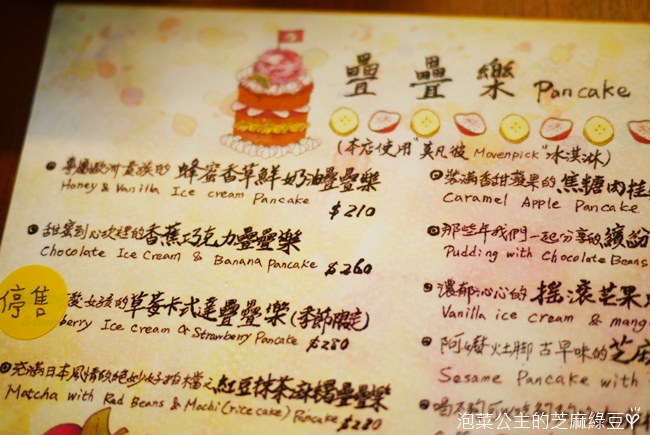 疊疊樂 Pancake
(本店使用"莫凡彼 Movenpick"冰淇淋)
專屬歐洲貴族的 蜂蜜香草鮮奶油疊疊樂
Honey & Vanilla Ice cream Pancake
$210
甜蜜到心坎裡的香蕉巧克力疊疊樂
Chocolate Ice Cream & Banana Pancake $260
停售
酸女孩的草莓卡式達疊疊樂(季節限定)
berry Ice Cream & Strawberry Pancake $280
充滿日本風情的絕妙好拍檔之紅豆抹茶麻糬疊疊樂
Matcha with Red Beans & Mochi (rice cake) Pancake
$280
落滿香甜蘋果的 焦糖肉桂
Caramel Apple Pancake
那些年我們一起分享的繽紛
Pudding with Chocolate Beans
濃郁沁心的 搖滾芒果
Vanilla ice cream & mang
阿嬤灶腳古早味的芝麻
Sesame Pancake with
泡菜公主的芝麻綠豆